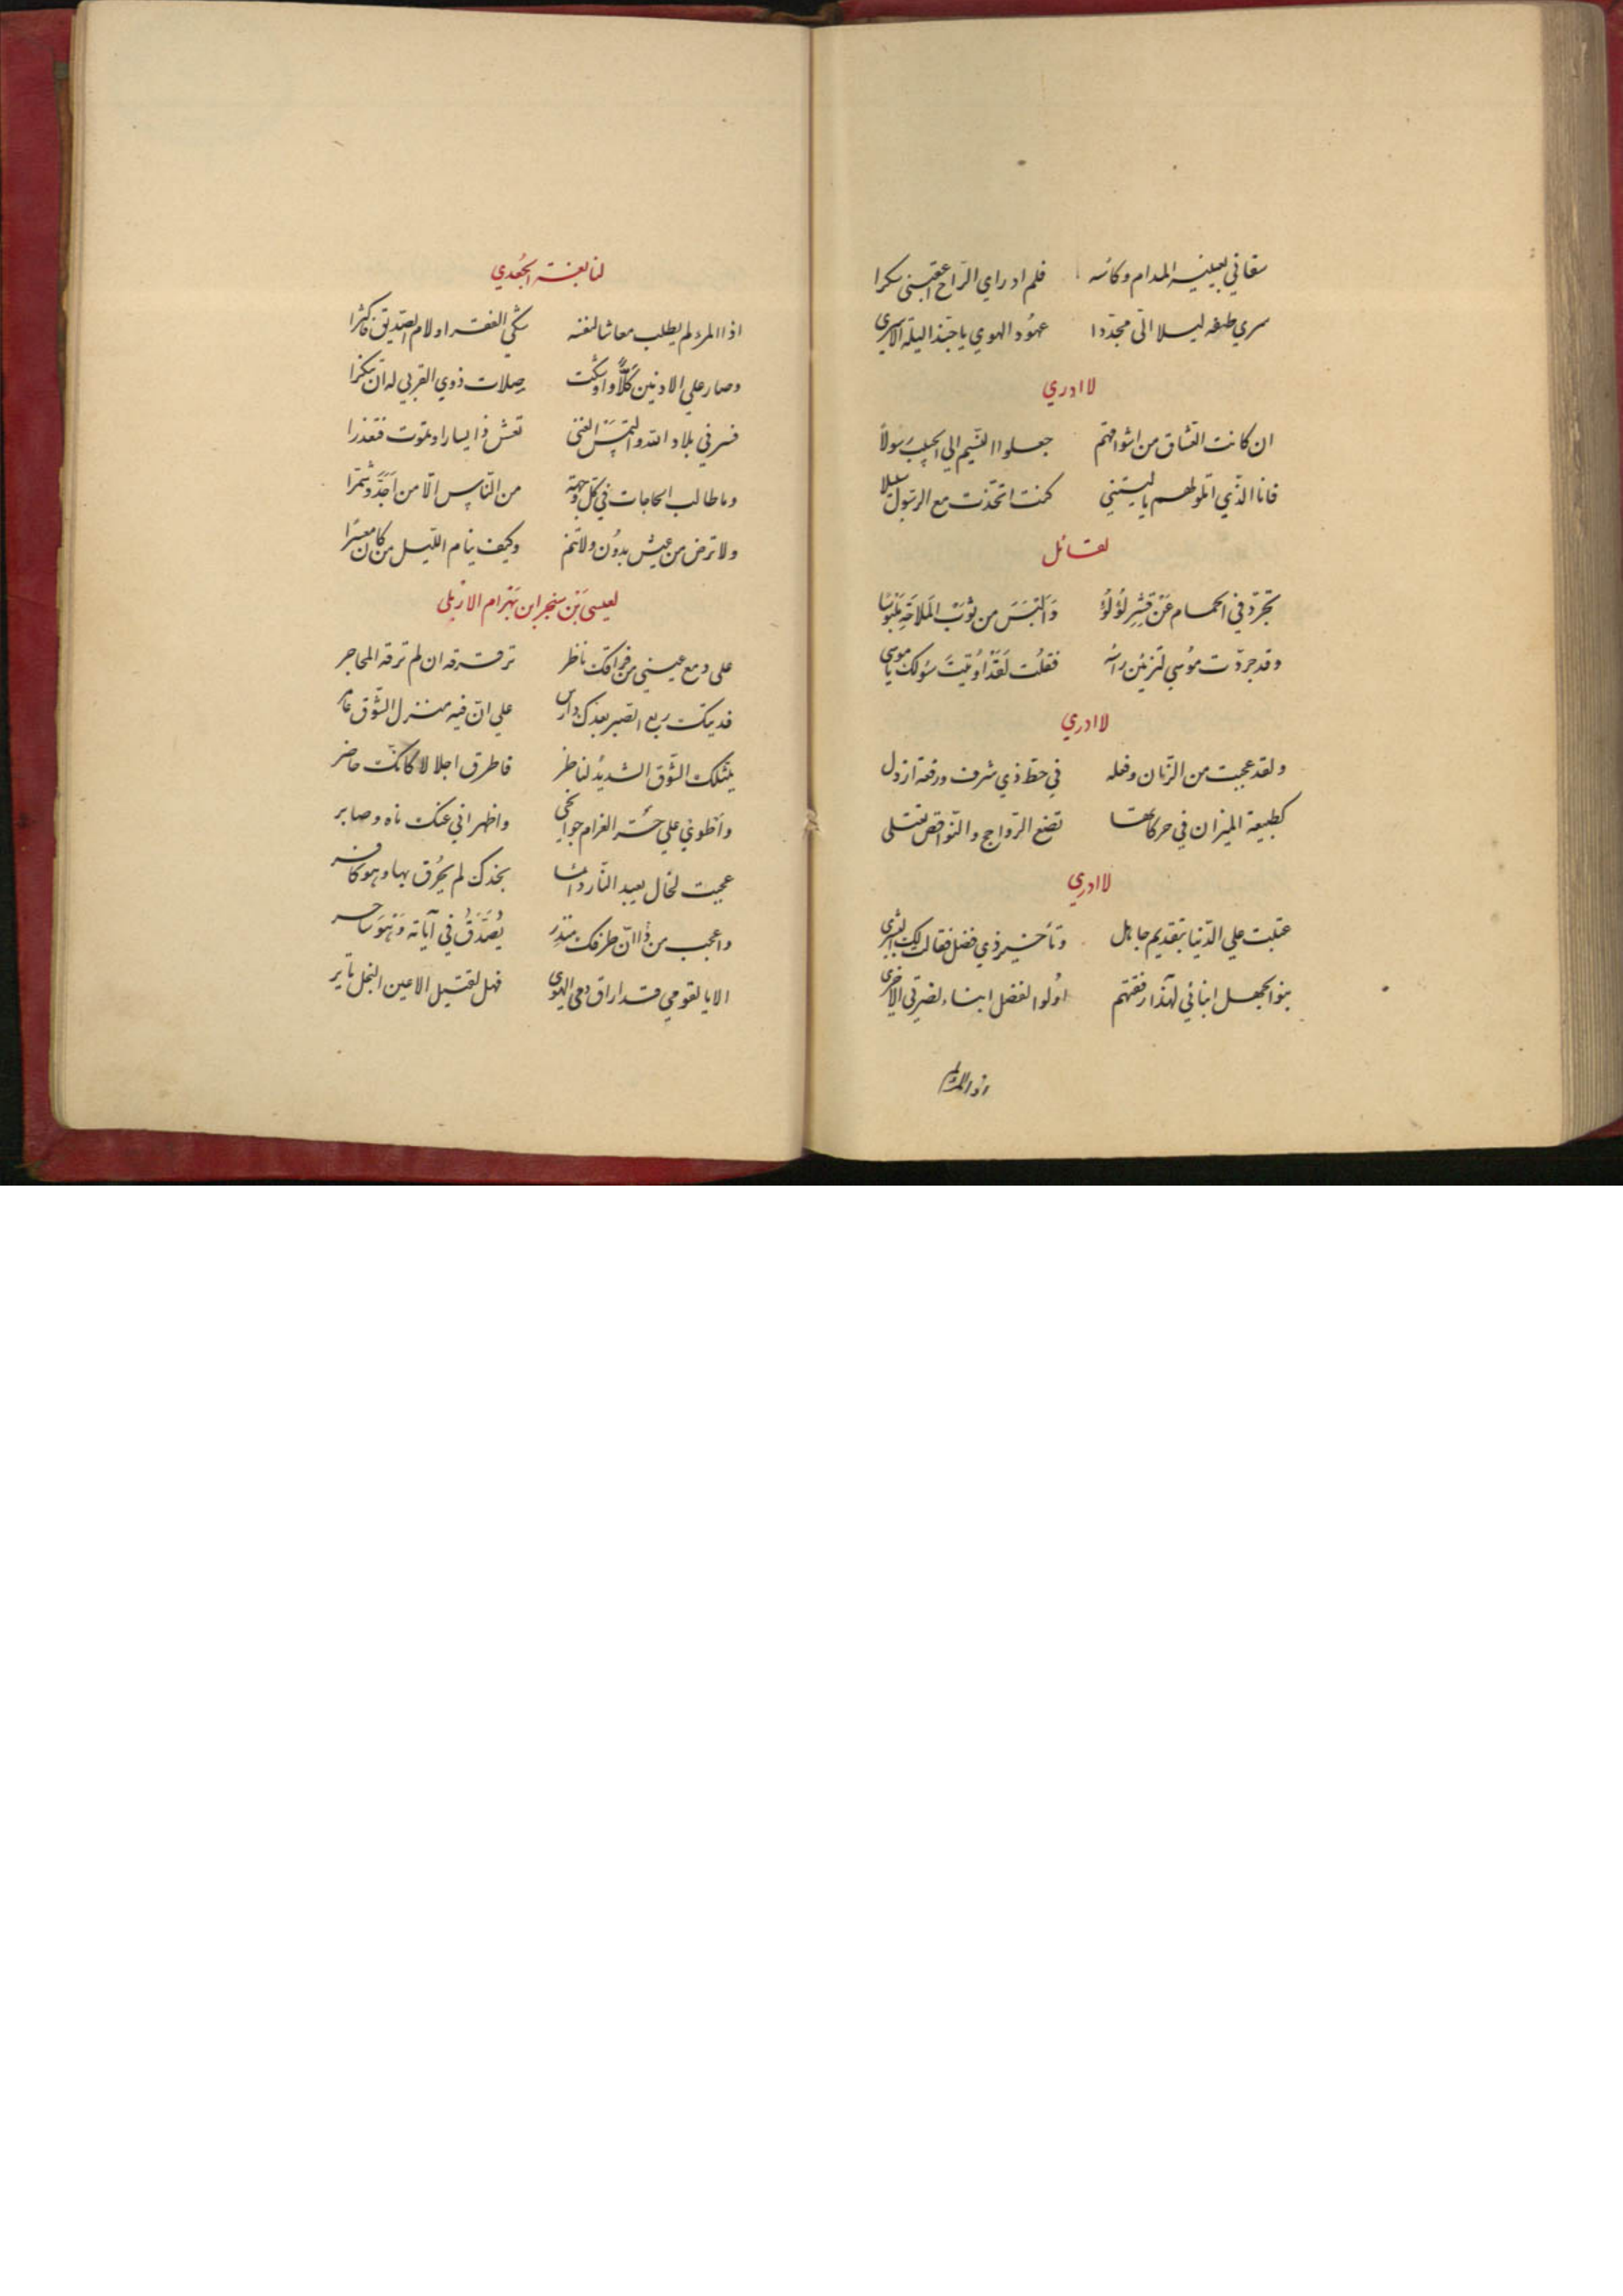 سقاني بعينيه المدام وكاسه فلم ادر اي الرّاح اعقبني سكرا
سري طيفه ليلا اليّ مجدّدا عهُود الهوي يا حبّذا ليلة الاسري
لا ادري
ان كانت العشاق من اشواقهم جعلوا النّسيم الي الحبيب رسولاً
فانا الذّي اتلو لهم يا ليتني كنت اتخّذت مع الرسول سبيلا
لقائل
تجرّد في الحمام عَنْ قِشر لُؤلُؤ وَالبَسَ من ثَوبْ المَلاحَةِ مَلْبُوسًا
وقد جرّدت مُوسي لتزيين راسه فقلُت لَقَدْ اوُتيتَ سُؤلك يا موسى
لا ادري
ولقد عجبت من الزّمان وفعله في حطّ ذي شرف ورفعة ارذل
كطبيعة الميزان في حركاتها تضع الرّواجح والنّواقص تعتلى
لا ادري
عتبت علي الدّنيا بتقديم جاهل وتأخير ذي فضل فقالت لك البشرى
بنو الجهل ابنائي لهذا رفعتهم اوُلوا الفضل ابناء لضرتي الاخرى
اذا المرء لم
لنابغة الجُعدي
اذا المرء لم يطلب معاشا لنفسه شكي الفقر او لام الصّديق فاكثرا
وصار علي الادنين كَلاًّ واوشكت صِلات ذوي القربي له ان تنكرا
فسر في بلاد الله والتمس الغنى تعش ذا يسار او تموت فتعذرا
وما طالب الحاجات في كلّ وجهة من النّاس الّا من اَجَدَّ وشمّرا
ولا ترض من عيش بدوُن ولا تنم وكيف ينام اللّيل من كان معسرًا
لعيسى بَنْ سنجر ابن بَهْرام الاربلى
على دمع عيني من فراقك ناظر ترقرقه ان لم ترقه المحاجر
فديتك ربع الصّبر بعدك دارس علي انّ فيه منزل الشّوق عامر
يمثلك الشّوق الشديدُ لناظر فاطرق اجلالا كانّك حاضر
واطوي علي حرّ الغرام جوانحي واظهر اني عنك ناه وصابر
عجبت لخال يعبد النّار دائما بخدك لم يحُرق بها وهو كافر
واعجب من ذا انّ طرفك منذر يُصَدَّقُ في آياته وَهْوَ ساحر
الا يا لقومي قد اراق دمي الهوى فهل لقتيل الاعين النجل ثاير